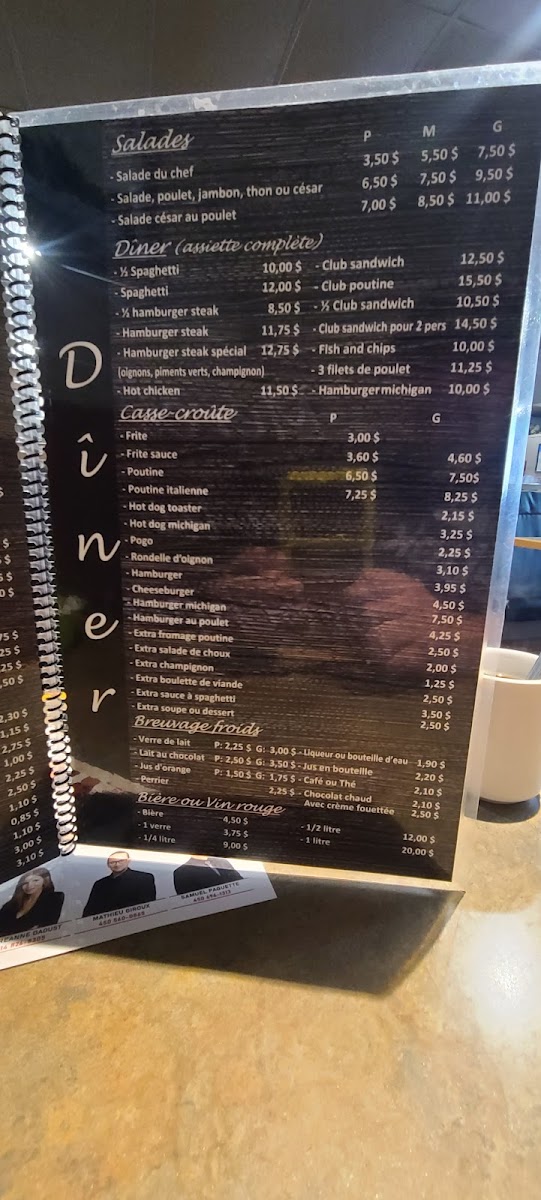 Salades P M G
- Salade du chef 3,50 $ 5,50 $ 7,50 $
- Salade, poulet, jambon, thon ou césar 6,50 $ 7,50 $ 9,50 $
- Salade césar au poulet 7,00 $ 8,50 $ 11,00 $
Dîner (assiette complète)
- ½ Spaghetti 10,00 $ - Club sandwich 12,50 $
- Spaghetti 12,00 $ - Club poutine 15,50 $
- ½ hamburger steak 8,50 $ - ½ Club sandwich 10,50 $
- Hamburger steak 11,75 $ - Club sandwich pour 2 pers 14,50 $
- Hamburger steak spécial 12,75 $ - Fish and chips 10,00 $
(oignons, piments verts, champignon) - 3 filets de poulet 11,25 $
- Hot chicken 11,50 $ - Hamburger michigan 10,00 $
Casse-croûte P G
- Frite 3,00 $
- Frite sauce 3,60 $ 4,60 $
- Poutine 6,50 $ 7,50$
- Poutine italienne 7,25 $ 8,25 $
- Hot dog toaster 2,15 $
- Hot dog michigan 3,25 $
- Pogo 2,25 $
- Rondelle d'oignon 3,10 $
- Hamburger 3,95 $
- Cheeseburger 4,50 $
- Hamburger michigan 7,50 $
- Hamburger au poulet 4,25 $
- Extra fromage poutine 2,50 $
- Extra salade de choux 2,00 $
- Extra champignon 1,25 $
- Extra boulette de viande 2,50 $
- Extra sauce à spaghetti 3,50 $
- Extra soupe ou dessert 2,50 $
Breuvage froids
- Verre de lait P: 2,25 $ G: 3,00 $ - Liqueur ou bouteille d'eau 1,90 $
- Lait au chocolat P: 2,50 $ G: 3,50 $ - Jus en bouteille 2,20 $
- Jus d'orange P: 1,50 $ G: 1,75 $ - Café ou Thé 2,10 $
- Perrier 2,25 $ - Chocolat chaud 2,10 $
Avec crème fouettée 2,50 $
Bière ou Vin rouge
- Bière 4,50 $
- 1 verre 3,75 $ - 1/2 litre 12,00 $
- 1/4 litre 9,00 $ - 1 litre 20,00 $
Dîner
75 $
25 $
25 $
,50 $
2,30 $
1,15 $
2,75 $
1,00 $
2,25 $
2,50 $
1,10 $
0,85 $
1,10 $
3,00 $
3,10 $
MATHIEU GIROUX
SAMUEL PAQUETTE